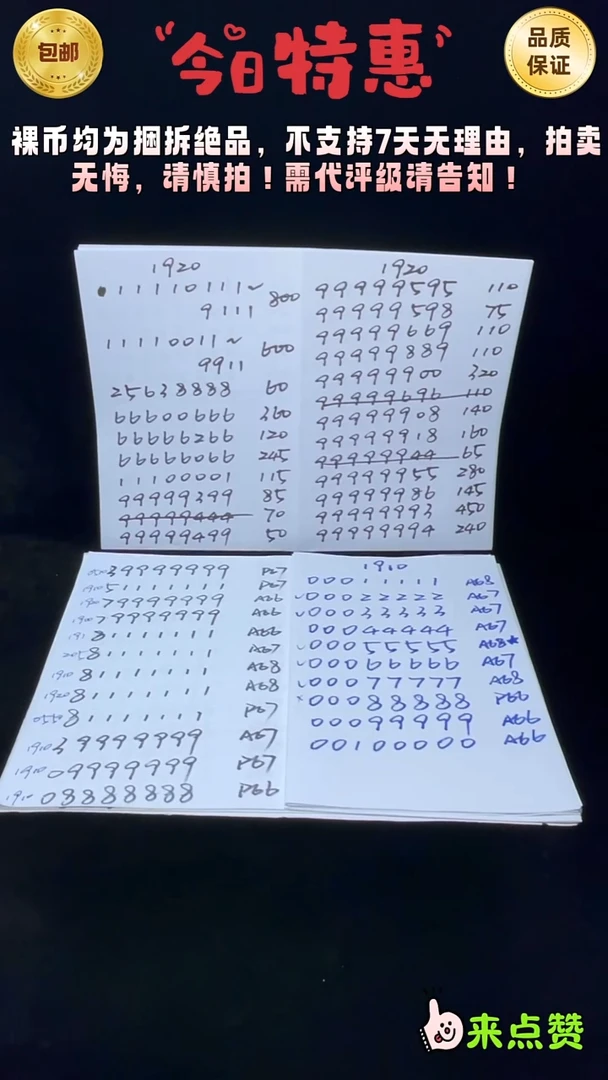 包邮
今日特惠
品质
保证
裸币均为捆拆绝品，不支持7天无理由，拍卖
无悔，请慎拍！需代评级请告知！
1920
11110111~
9111 800
11110011~
9911 600
25638888 60
66600666 360
66666266 120
66666066 245
11100001 115
99999399 85
99999444 70
99999499 50
1920
99999595 110
99999598 75
99999669 110
99999889 110
99999900 320
99999696 110
99999908 140
99999918 160
99999944 65
99999955 280
99999986 145
99999993 450
99999994 240
0550 39999999 P67
1920 51111111 P67
1920 79999999 A66
1920 79999999 A66
1912 21111111 A66
2058 81111111 A67
1910 81111111 A68
1920 81111111 A68
0550 81111111 P67
1910 39999999 A67
1910 09999999 P67
1910 08888888 P66
1910
00011111 A68
00022222 A67
00033333 A67
00044444 A67
00055555 A68★
00066666 A67
00077777 A68
00088888 P66
00099999 A66
00100000 A66
来点赞